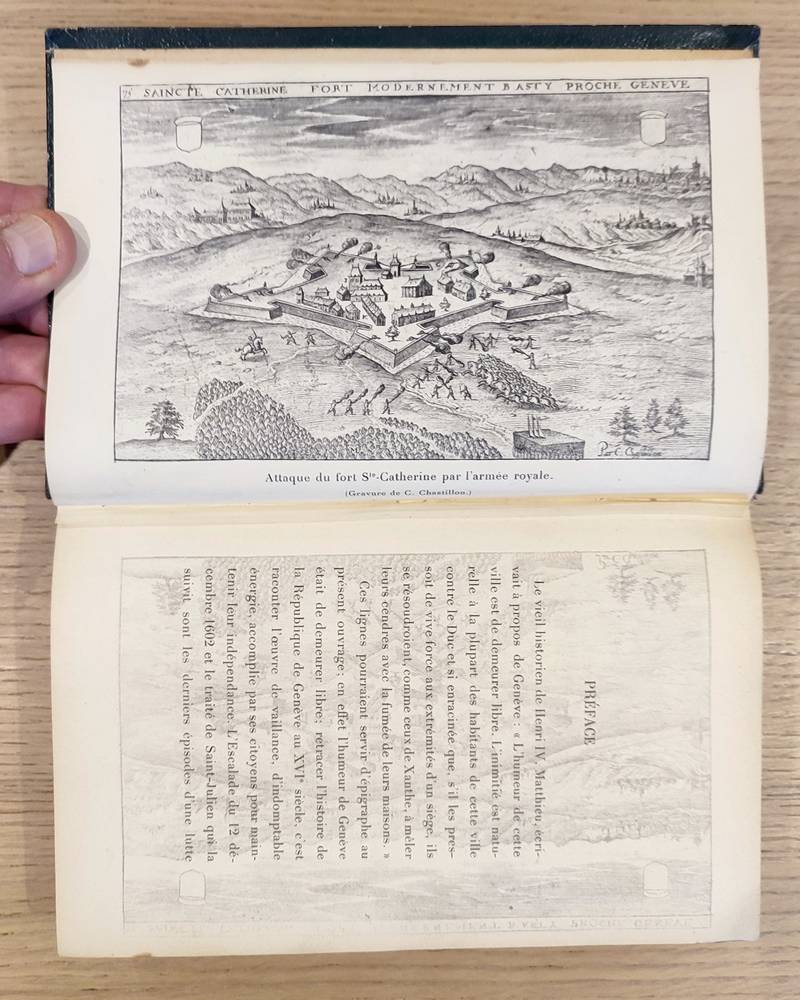 SAINCTE CATHERINE FORT MODERNEMENT BASTY PROCHE GENEVE
Attaque du fort Ste-Catherine par l'armée royale.
(Gravure de C. Chastillon.)
PRÉFACE
Le vieil historien de Henri IV, Matthieu, écri-
vait à propos de Genève : « L'humeur de cette
ville est de demeurer libre. L'inimitié est natu-
relle à la plupart des habitants de cette ville
contre le Duc et si enracinée que, s'il les pres-
soit de vive force aux extrémités d'un siège, ils
se résoudroient, comme ceux de Xanthe, à mêler
leurs cendres avec la fumée de leurs maisons. »
Ces lignes pourraient servir d'épigraphe au
présent ouvrage; en effet l'humeur de Genève
était de demeurer libre; retracer l'histoire de
la République de Genève au XVIe siècle, c'est
raconter l'œuvre de vaillance, d'indomptable
énergie, accomplie par ses citoyens pour main-
tenir leur indépendance. L'Escalade du 12 dé-
cembre 1602 et le traité de Saint-Julien qui la
suivit sont les derniers épisodes d'une lutte